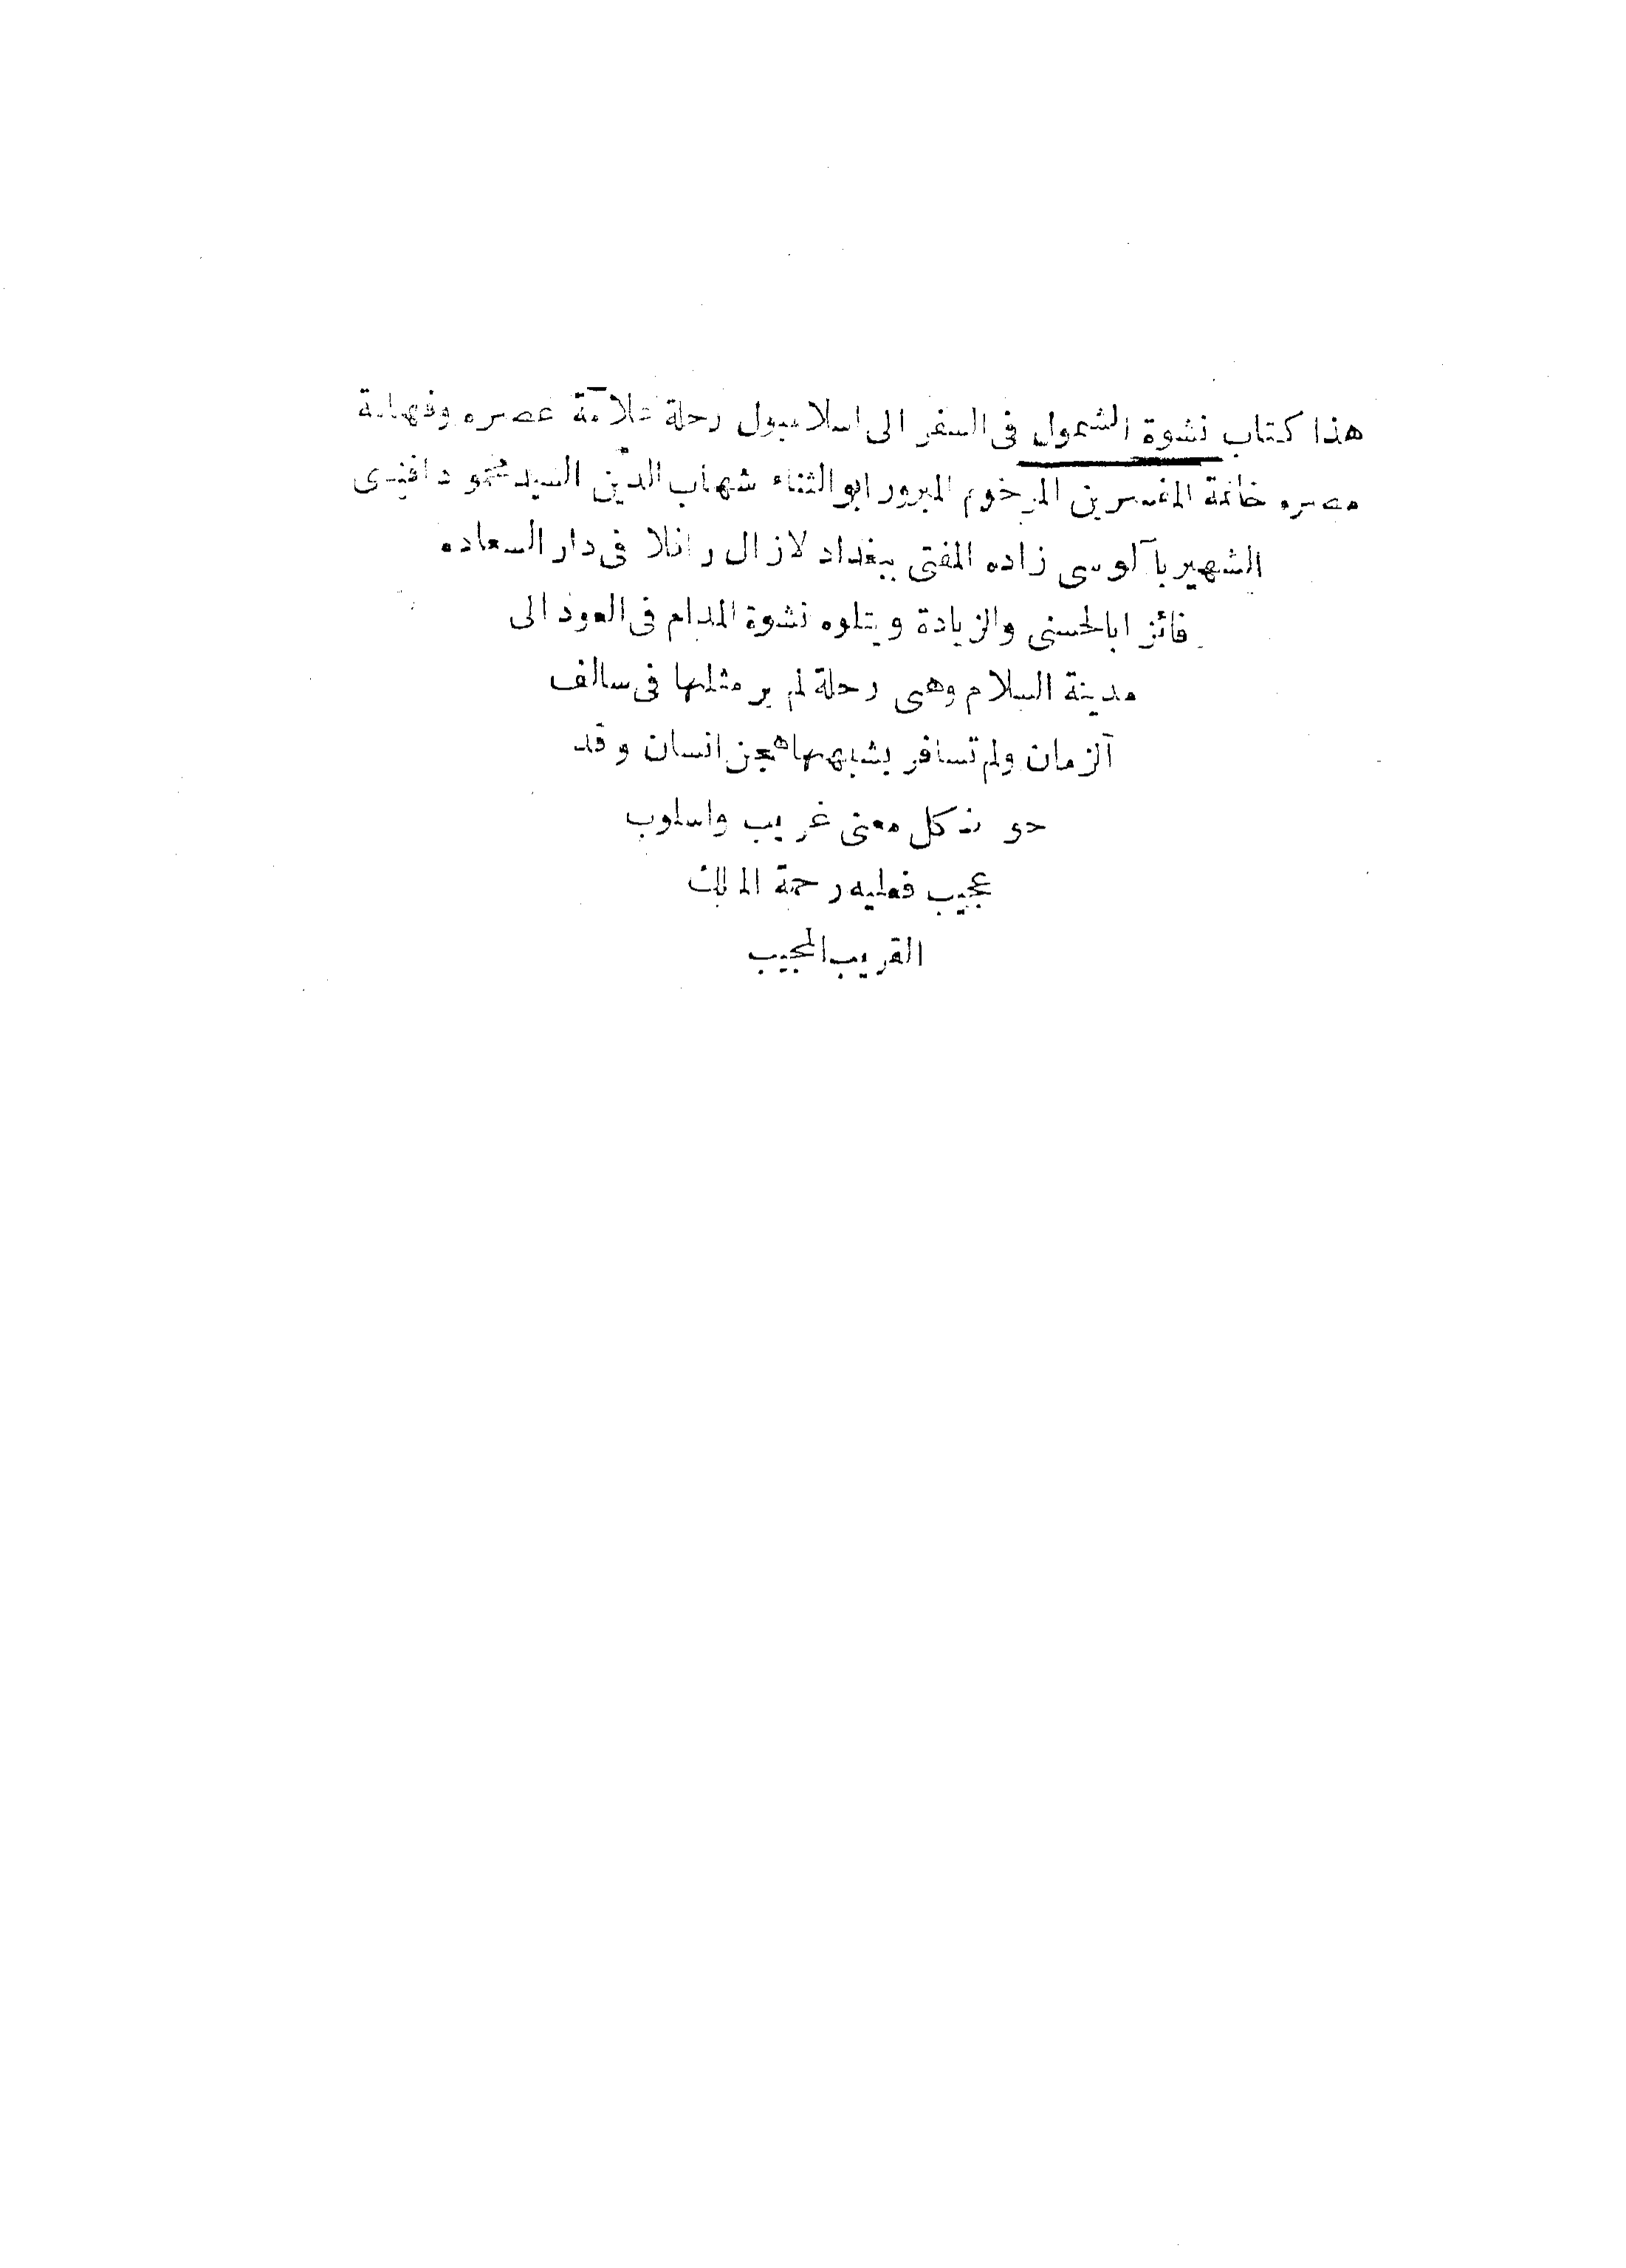 هذا كتاب نشوة الشمول فى السفر الى اسلامبول رحلة علامّة عصره وفهامة
مصره خاتمة المفسرين المرحوم المبرور ابو الثناء شهاب الدّين السيد محمود افندى
الشهير بآلوسى زاده المفتى ببغداد لازال رافلا فى دار السعاده
فائزا بالحسنى والزيادة ويتلوه نشوة المدام فى العود الى
مدينة السلام وهى رحلة لم ير مثلها فى سالف
الزمان ولم تسافر بشبهها هجن انسان وقد
حوت كل معنى غريب واسلوب
عجيب فعليه رحمة الملك
القريب المجيب